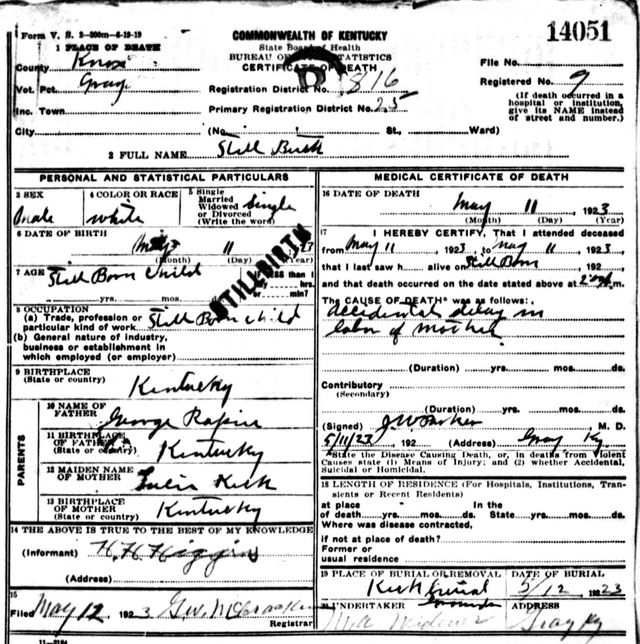 Form V. S. 2-300m-6-19-19
COMMONWEALTH OF KENTUCKY
14051
1 PLACE OF DEATH
State Board of Health
BUREAU OF STATISTICS
File No.
County Knox
CERTIFICATE OF DEATH
Registered No. 9
Vot. Pct. Gray
Registration District No. 816
(If death occurred in a
hospital or institution,
give its NAME instead
of street and number.)
Inc. Town
Primary Registration District No. 25
City (No. St., Ward)
2 FULL NAME Still Birth
PERSONAL AND STATISTICAL PARTICULARS
3 SEX Male
4 COLOR OR RACE white
5 Single
Married
Widowed
or Divorced
(Write the word) Single
6 DATE OF BIRTH May 11 23
(Month) (Day) (Year)
STILLBIRTH
7 AGE Still Born Child
If LESS than 1
day hrs.
yrs. mos. or min?
8 OCCUPATION
(a) Trade, profession or
particular kind of work Still Born child
(b) General nature of industry,
business or establishment in
which employed (or employer)
9 BIRTHPLACE
(State or country) Kentucky
PARENTS
10 NAME OF
FATHER George
11 BIRTHPLACE
OF FATHER
(State or country) Kentucky
12 MAIDEN NAME
OF MOTHER
13 BIRTHPLACE
OF MOTHER
(State or country) Kentucky
14 THE ABOVE IS TRUE TO THE BEST OF MY KNOWLEDGE
(Informant) H. H. Higgins
(Address)
15
Filed May 12 1923 Geo. McCracken
Registrar
11-3184
MEDICAL CERTIFICATE OF DEATH
16 DATE OF DEATH
May 11, 1923
(Month) (Day) (Year)
17 I HEREBY CERTIFY, That I attended deceased
from May 11 1923, to May 11 1923,
that I last saw h alive on Still Born 192
and that death occurred on the date stated above at m.
The CAUSE OF DEATH* was as follows:
accidental delay in
labor of mother
(Duration) yrs. mos. ds.
Contributory
(Secondary)
(Duration) yrs. mos. ds.
(Signed) J W Parker M. D.
5/11/23, 192 (Address) Gray Ky.
*State the Disease Causing Death, or, in deaths from Violent
Causes state (1) Means of Injury; and (2) whether Accidental,
Suicidal or Homicidal.
18 LENGTH OF RESIDENCE (For Hospitals, Institutions, Tran-
sients or Recent Residents)
at place In the
of death yrs. mos. ds. State yrs. mos. ds.
Where was disease contracted,
if not at place of death?
Former or
usual residence
19 PLACE OF BURIAL OR REMOVAL DATE OF BURIAL
5/12 1923
20 UNDERTAKER ADDRESS
Gray Ky